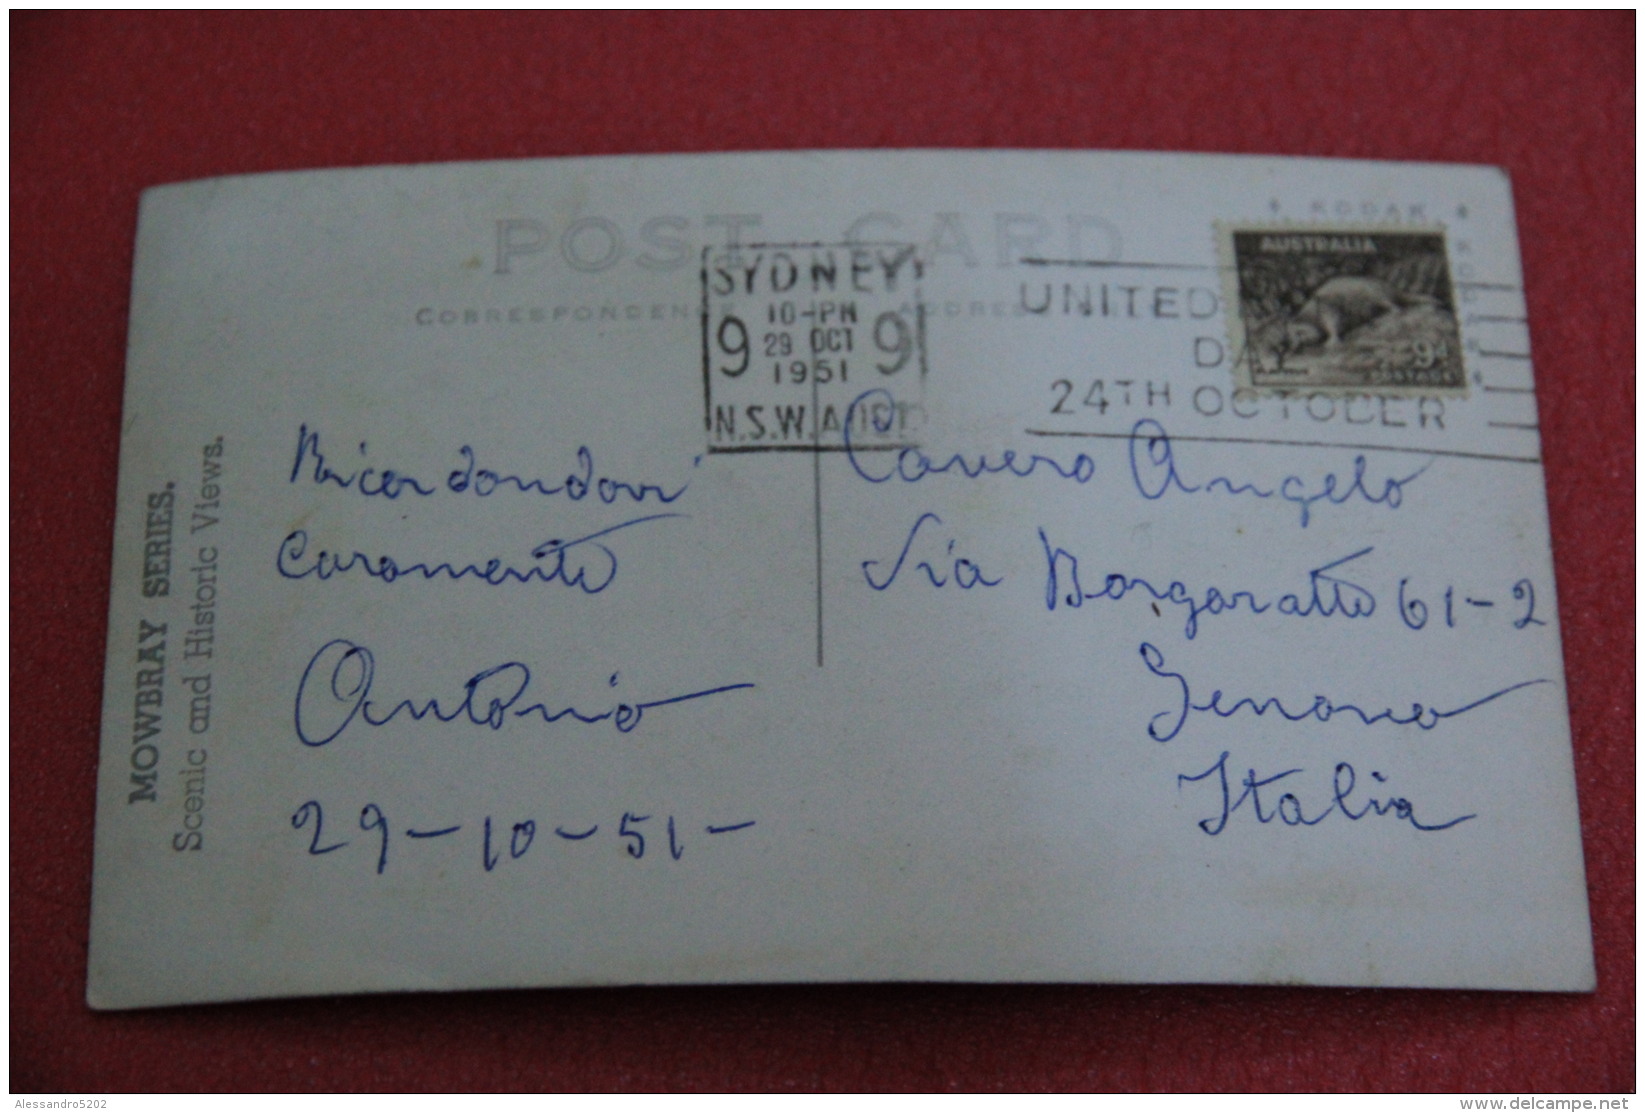 POST CARD
CORRESPONDENCE
ADDRESS
KODAK
AUSTRALIA
9D
POSTAGE
SYDNEY
10-PM
9 29 OCT 9
1951
N.S.W. AUST
UNITED
24TH OCTOBER
MOWBRAY SERIES.
Scenic and Historic Views.
Ricordondovi
Caramente
Antonio
29-10-51-
Cavero Angelo
Via Borgoratti 61-2
Genova
Italia
Alessandro5202
www.delcampe.net